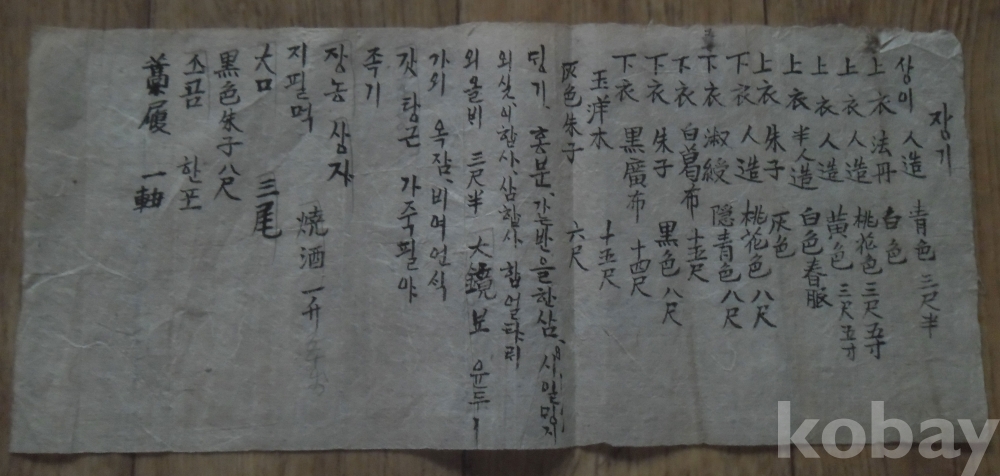 장기
상이 人造 青色 三尺半
上衣 法丹 白色
上衣 人造 桃花色 三尺五寸
上衣 人造 黃色 三尺五寸
上衣 半人造 白色春服
上衣 朱子 灰色
下衣 人造 桃花色 八尺
下衣 淑綬 隠青色 八尺
下衣 白葛布 十五尺
下衣 朱子 黒色 八尺
下衣 黒廣布 十四尺
玉洋木 十五尺
灰色朱子 六尺
딩기, 홍분, 가는반을한삼, 시말밍지
외싯, 이합사, 삼합사 합얼타리
외올비 三尺半 大鏡보 윤두
가위 옥잠, 비여언식
갓 탕근 가죽필야
족기
장농 상자
지필먹 燒酒 一升
大口 三尾
黒色朱子 八尺
소폼 한포
草履 一軸
kobay